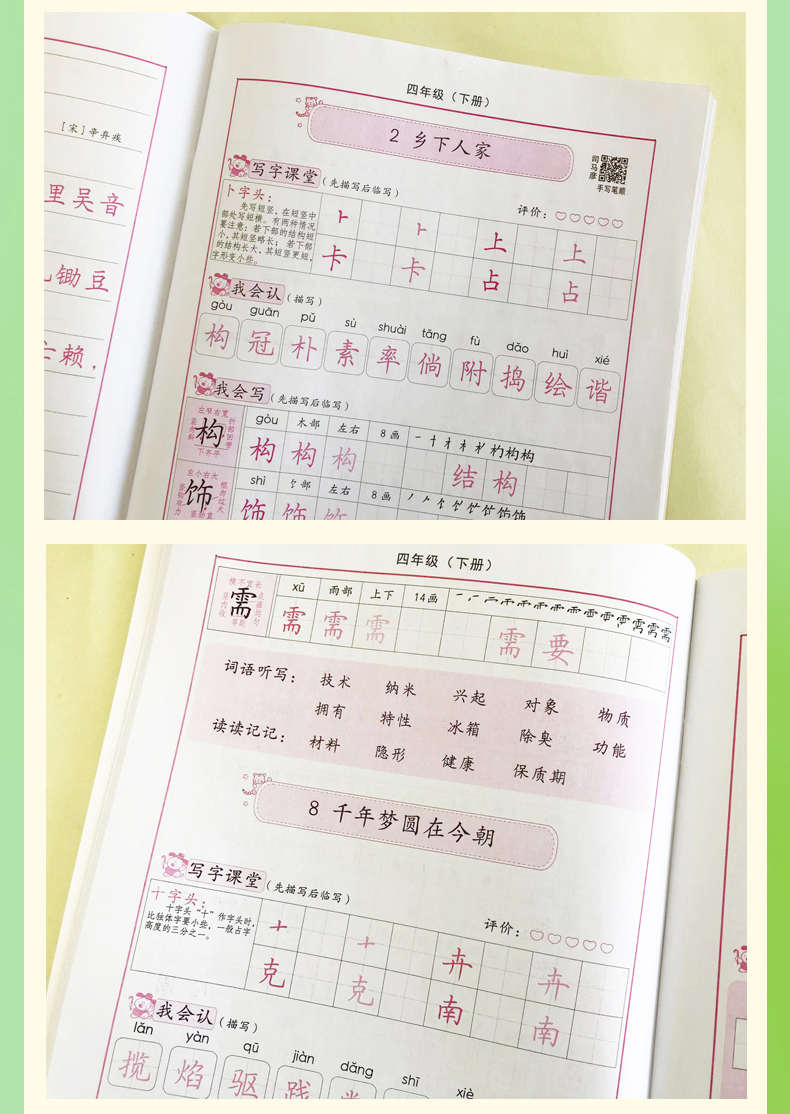 [宋]辛弃疾
里吴音
锄豆
亡赖，
四年级（下册）
2 乡下人家
司马彦
手写笔顺
写字课堂（先描写后临写）
评价：
卜字头：
先写短竖，在短竖中
部处写短横。有两种情况
要注意：若下部的结构短
小，其短竖略长；若下部
的结构长大，其短竖更短，
字形变小些。
⺊ ⺊ 上 上
卡 卡 占 占
我会认（描写）
gòu guān pǔ sù shuài tǎng fù dǎo huì xié
构 冠 朴 素 率 倘 附 捣 绘 谐
我会写（先描写后临写）
左窄右宽
构
下齐平
gòu 木部 左右 8画
构 构 构 结 构
左小右大
饰
shì 饣部 左右 8画
饰 饰 饰
四年级（下册）
横不宜长
需
等距
xū 雨部 上下 14画
需 需 需 需 要
词语听写： 技术 纳米 兴起 对象 物质
拥有 特性 冰箱 除臭 功能
读读记记： 材料 隐形 健康 保质期
8 千年梦圆在今朝
写字课堂（先描写后临写）
评价：
十字头：
十字头“十”作字头时，
比独体字要小些，一般占字
高度的三分之一。
十 十 卉 卉
克 克 南 南
我会认（描写）
lǎn yàn qū jiàn dǎng shī xiè
揽 焰 驱 践